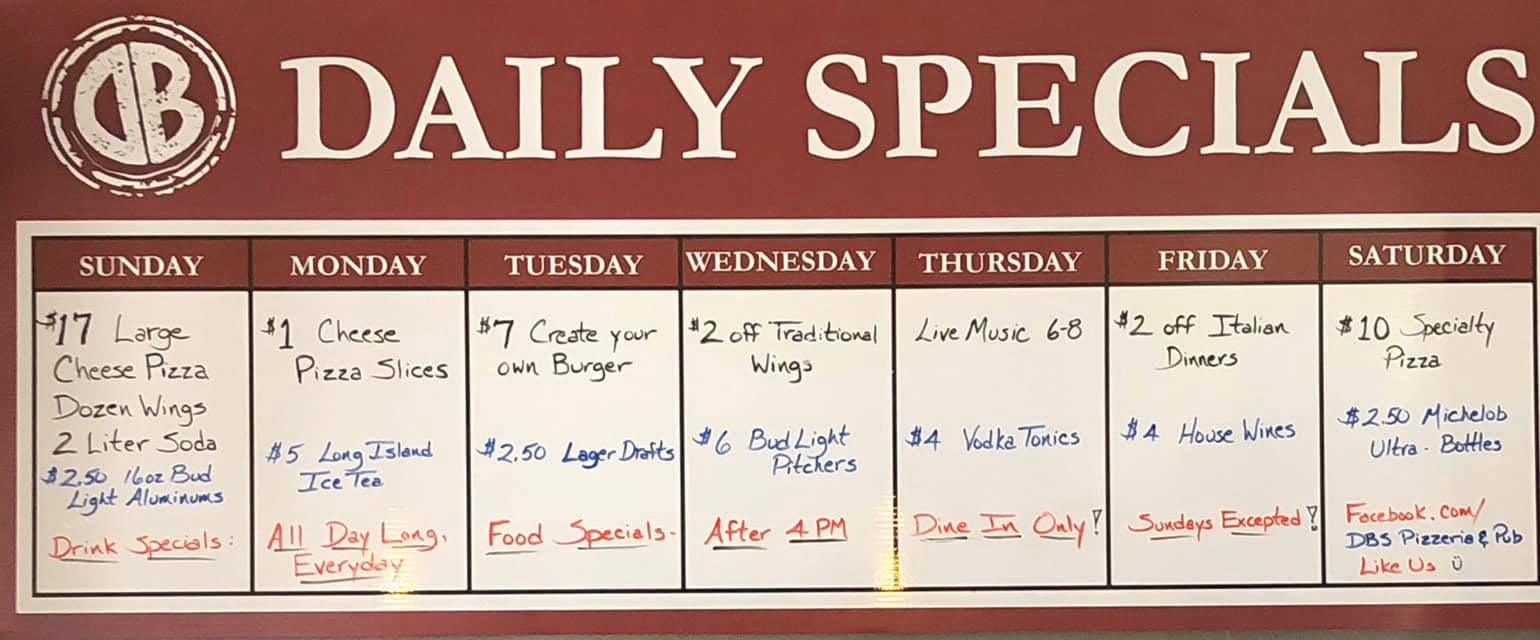 DB
DAILY SPECIALS
SUNDAY
$17 Large
Cheese Pizza
Dozen Wings
2 Liter Soda
$2.50 16oz Bud
Light Aluminums
Drink Specials:
MONDAY
$1 Cheese
Pizza Slices
$5 Long Island
Ice Tea
All Day Long,
Everyday
TUESDAY
$7 Create your
own Burger
$2.50 Lager Drafts
Food Specials-
WEDNESDAY
$2 off Traditional
Wings
$6 Bud Light
Pitchers
After 4 PM
THURSDAY
Live Music 6-8
$4 Vodka Tonics
Dine In Only!
FRIDAY
$2 off Italian
Dinners
$4 House Wines
Sundays Excepted!
SATURDAY
$10 Specialty
Pizza
$2.50 Michelob
Ultra - Bottles
Facebook.com/
DBS Pizzeria & Pub
Like Us ü